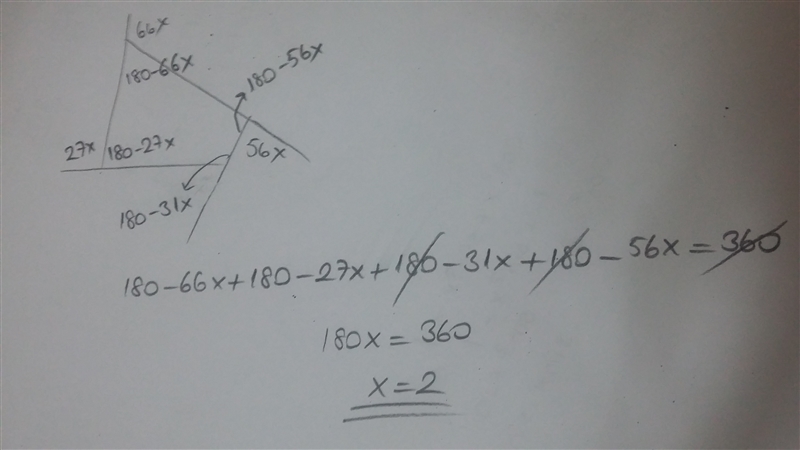 66x
180-66x
180-56x
27x
180-27x
56x
180-31x
180-66x+180-27x+180-31x+180-56x=360
180x=360
x=2